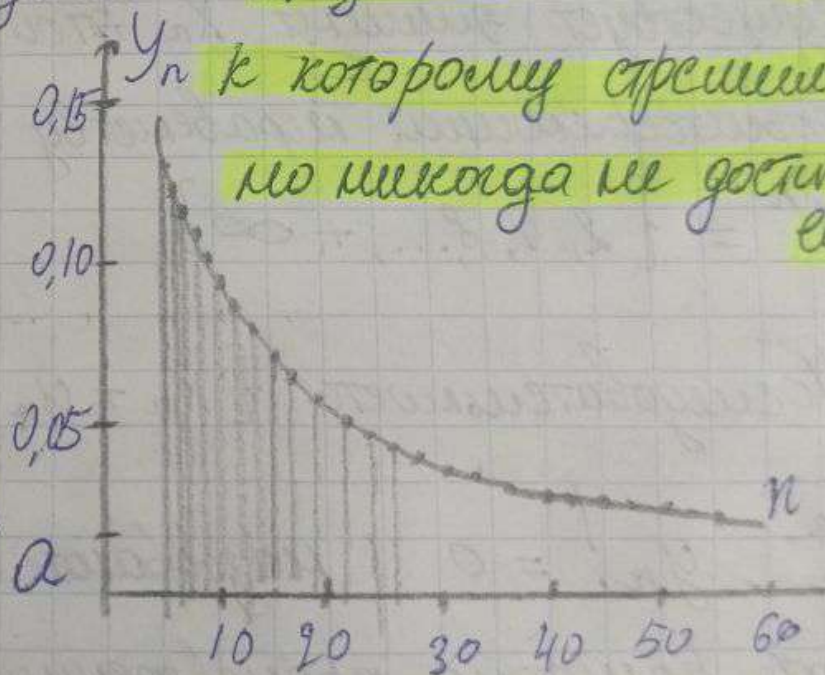 Yn к которому стремим
0,15
но никогда не дости
0,10
0,05
n
a
10 20 30 40 50 60